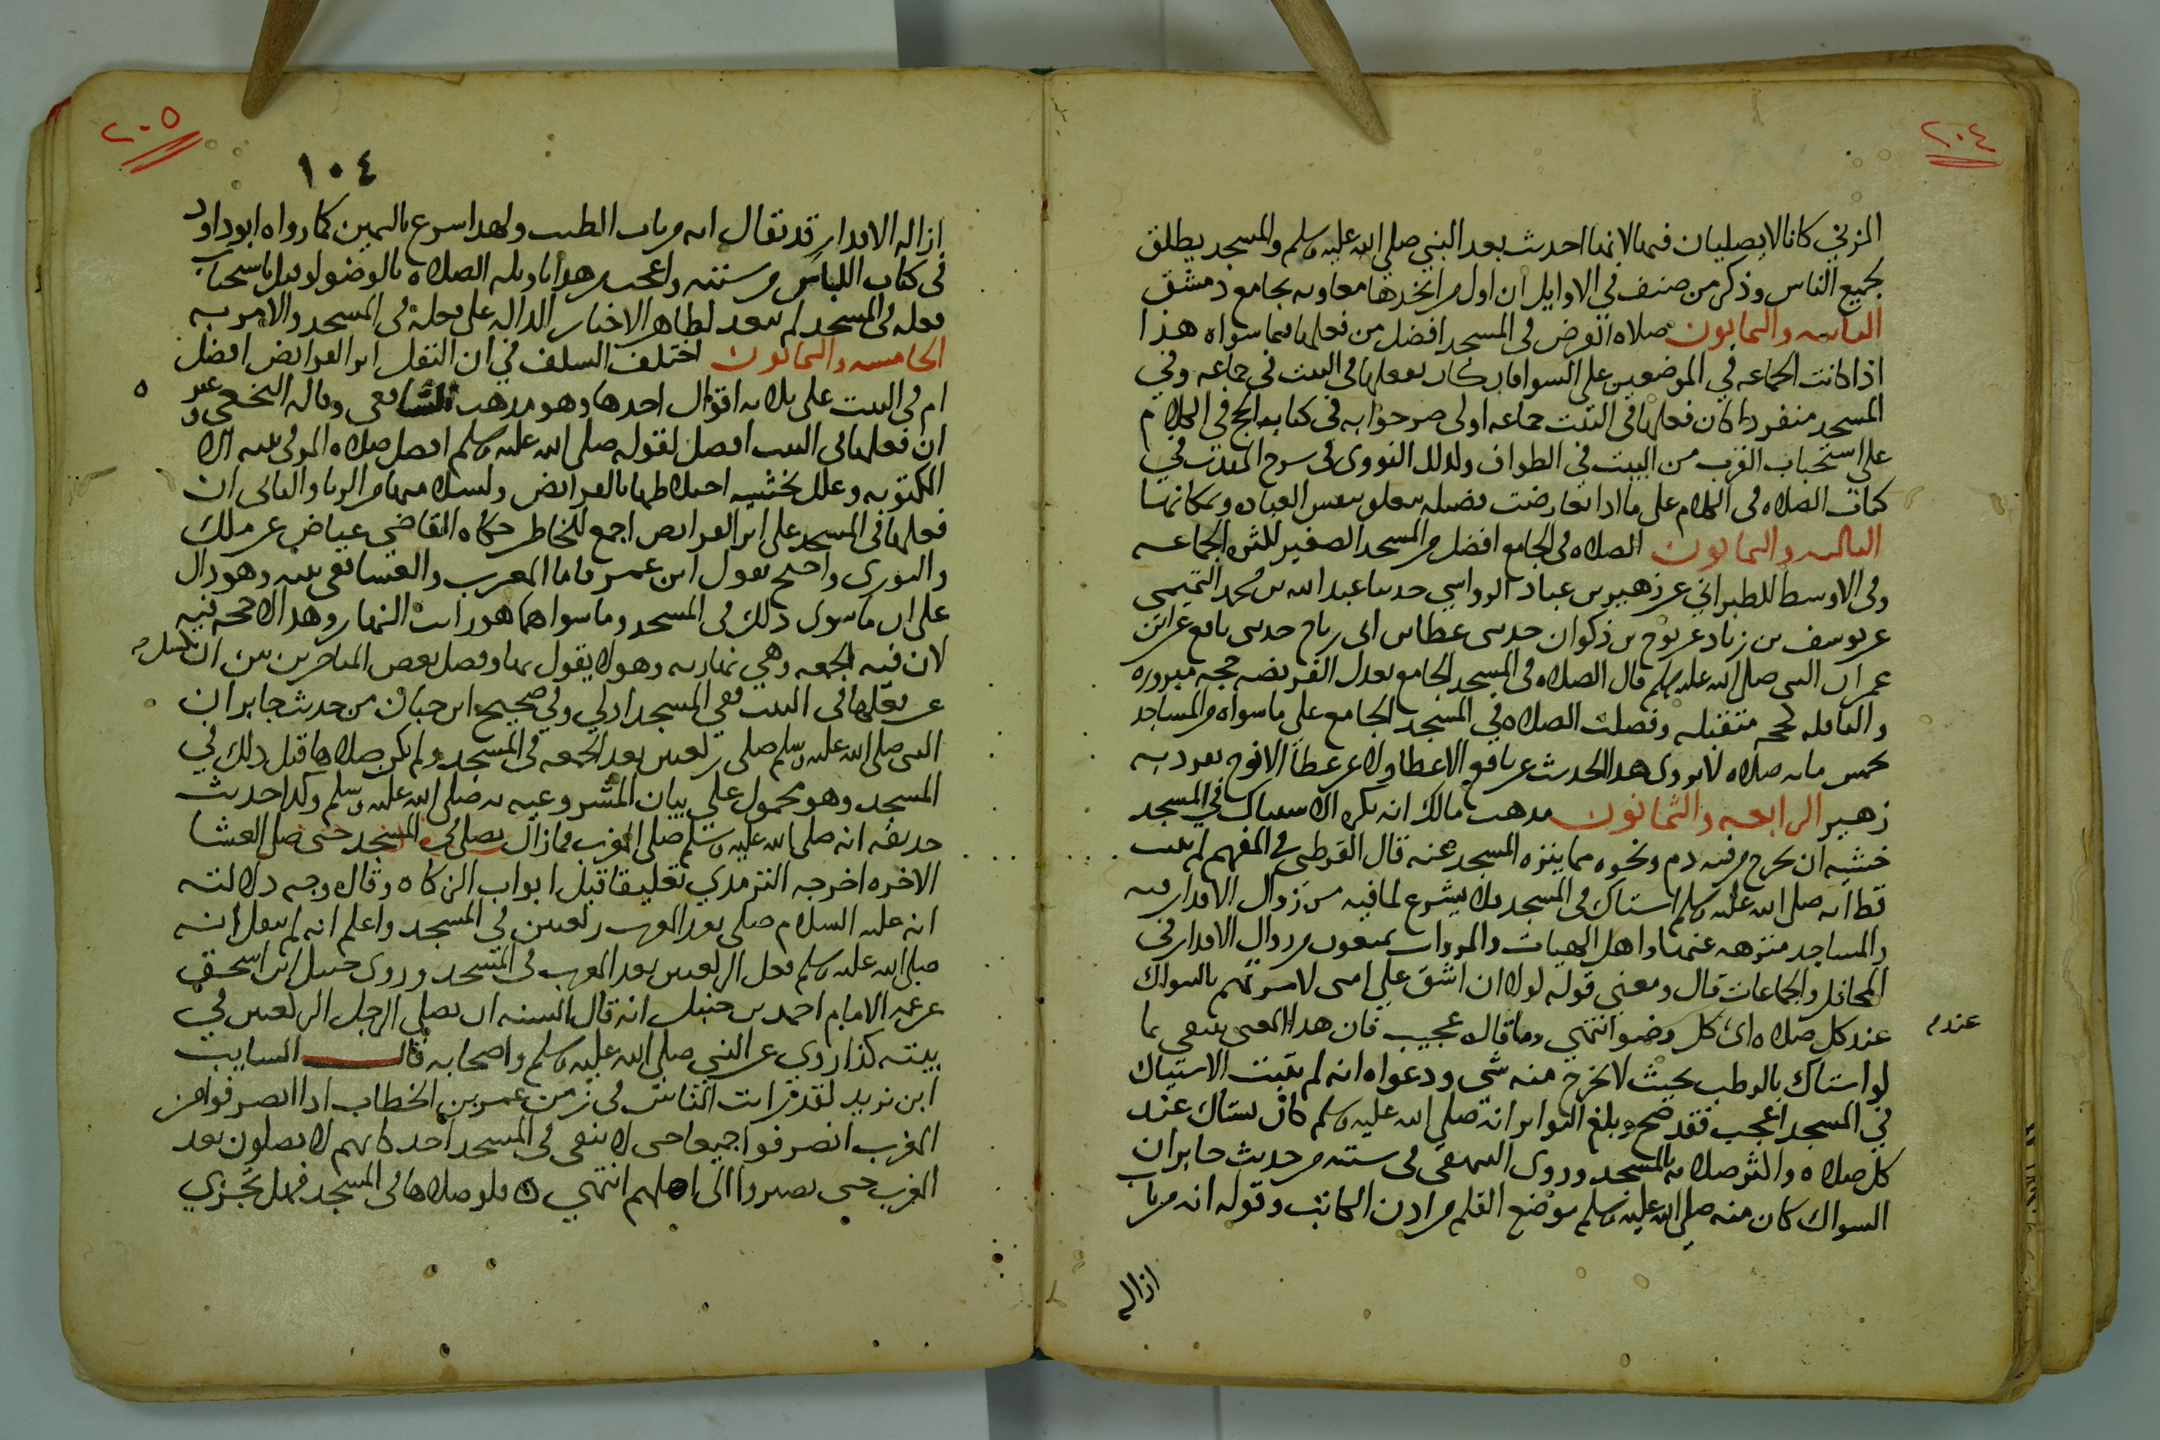 ٢٠٤
المزني كانا لا يصليان فيها لانها احدث بعد النبي صلى الله عليه وسلم والمسجد يطلق
لجميع الناس وذكر من صنف في الاوايل ان اول من اتخذها معاويه بجامع دمشق
الثانيه والثمانون صلاه الفرض في المسجد افضل من فعلها فيما سواه هذا
اذا كانت الجماعه في الموضعين على السوا فان كان بفعلها في البيت في جماعه وفي
المسجد منفردا كان فعلها في البيت جماعه اولى صرحوا به في كتاب الحج في الكلام
على استحباب القرب من البيت في الطواف ولذلك النووي في شرح المهذب في
كتاب الصلاه في الكلام على ما اذا تعارضت فضيله تتعلق بنفس العباده وبمكانها
الثالثه والثمانون الصلاه في الجامع افضل من المسجد الصغير لكثره الجماعه
وفي الاوسط للطبراني عن زهير بن عباد الرواسي حدثنا عبد الله بن محمد التميمي
عن يوسف بن زياد عن نوح بن ذكوان حدثني عطا بن ابي رباح حدثني نافع عن ابن
عمر ان النبي صلى الله عليه وسلم قال الصلاه في المسجد الجامع تعدل الفريضه حجه مبروره
والنافله كحجه متقبله وفضلت الصلاه في المسجد الجامع على ما سواه من المساجد
بخمس مايه صلاه لا يروى هذا الحديث عن نافع الا عطا ولا عن عطا الا نوح تفرد به
زهير الرابعه والثمانون مذهب مالك انه يكره الاستياك في المسجد
خشيه ان يخرج من فيه دم ونحوه مما ينزه المسجد عنه قال القرطبي في المفهم لم يثبت
قط انه صلى الله عليه وسلم استاك في المسجد فلا يشرع لما فيه من زوال الاقذار فيه
والمساجد منزهه عنها واهل الهيات والمروات يمنعون من زوال الاقذار في
المحافل والجماعات قال ومعنى قوله لولا ان اشق على امتي لامرتهم بالسواك
عند كل صلاه اي كل وضو انتهى وما قاله عجيب فان هذا المعنى ينتفي بما
عنده
لو استاك بالرطب بحيث لا يخرج منه شي ودعواه انه لم يثبت الاستياك
في المسجد اعجب فقد صح وبلغ التواتر انه صلى الله عليه وسلم كان يستاك عند
كل صلاه واكثر صلاته بالمسجد وروى البيهقي في سننه من حديث جابر ان
السواك كان منه صلى الله عليه وسلم موضع القلم من اذن الكاتب وقوله انه من باب
ازاله
٢٠٥
١٠٤
ازاله الاقذار قد يقال انه من باب الطيب ولهذا شرع باليمين كما رواه ابو داود
في كتاب اللباس من سننه واعجب من هذا تاويله الصلاه بالوضو ولو قيل باستحباب
فعله في المسجد لم يبعد لظاهر الاخبار الداله على فعله في المسجد والامر به
الخامسه والثمانون اختلف السلف في ان التنفل اثر الفرايض افضل
ام في البيت على ثلاثه اقوال احدها وهو مذهب الشافعي وقاله النخعي وغيره
ان فعلها في البيت افضل لقوله صلى الله عليه وسلم افضل صلاه المر في بيته الا
المكتوبه وعلل بخشيه اختلاطها بالفرايض وليسلم فيها من الريا والثاني ان
فعلها في المسجد على اثر الفرايض اجمع للخاطر حكاه القاضي عياض عن مالك
والثوري واحتج بقول ابن عمر فاما المغرب والعشا ففي بيته وهو دال
على ان ما سوى ذلك في المسجد وما سواهما هو راتب النهار وهذا لا حجه فيه
لان فيه الجمعه وهي نهاريه وهو لا يقول بها وفصل بعض المتاخرين بين ان تكسل
عن فعلها في البيت ففي المسجد اولى وفي صحيح ابن حبان من حديث جابر ان
النبي صلى الله عليه وسلم صلى ركعتين بعد الجمعه في المسجد ولم يكن صلاها قبل ذلك في
المسجد وهو محمول على بيان المشروعيه به صلى الله عليه وسلم وكذا حديث
حذيفه انه صلى الله عليه وسلم صلى المغرب فما زال يصلي في المسجد حتى صلى العشا
الاخره اخرجه الترمذي تعليقا قبل ابواب الزكاه وقال وجه دلالته
انه عليه السلام صلى بعد المغرب ركعتين في المسجد واعلم انه لم ينقل انه
صلى الله عليه وسلم فعل الركعتين بعد المغرب في المسجد وروى حنبل ابن اسحق
عن عمه الامام احمد بن حنبل انه قال السنه ان يصلي الرجل الركعتين في
بيته كذا روي عن النبي صلى الله عليه وسلم واصحابه قال السايب
ابن يزيد لقد رايت الناس في زمن عمر بن الخطاب اذا انصرفوا من
المغرب انصرفوا جميعا حتى لا يبقى في المسجد احد كانهم لا يصلون بعد
المغرب حتى يصيروا الى اهلهم انتهى ه فلو صلاها في المسجد فهل تجزي